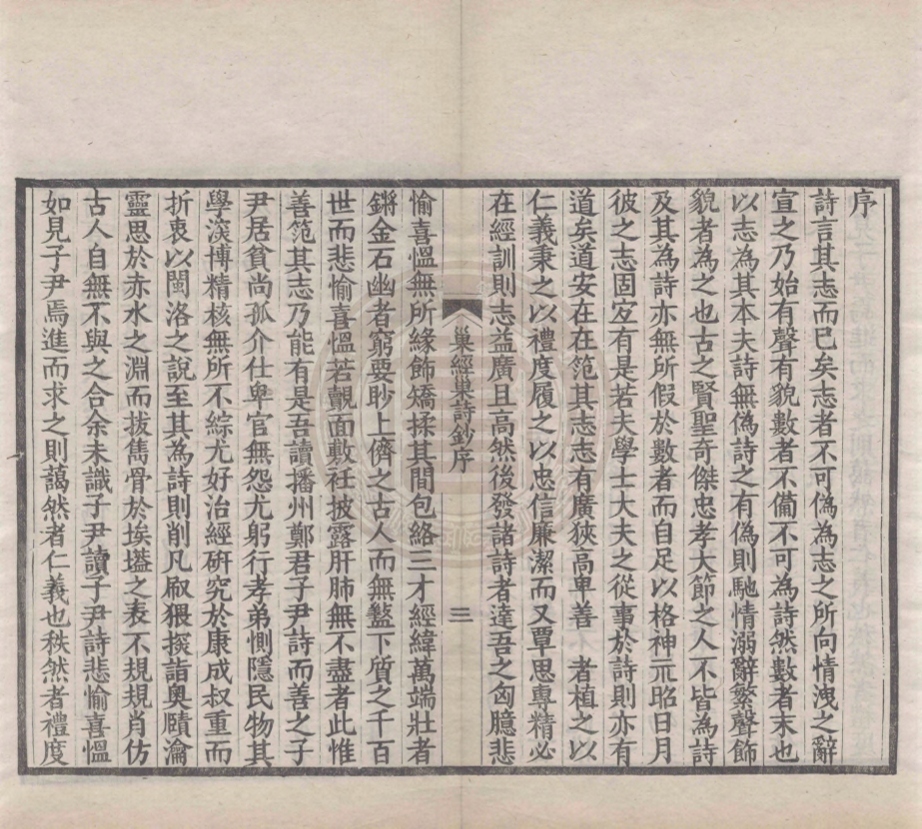 序
詩言其志而已矣志者不可偽為志之所向情洩之辭
宣之乃始有聲有貌數者不僃不可為詩然數者末也
以志為其本夫詩無偽詩之有偽則馳情溺辭繁聲飾
貌者為之也古之賢聖奇傑忠孝大節之人不皆為詩
及其為詩亦無所假於數者而自足以格神示昭日月
彼之志固宐有是若夫學士大夫之從事於詩則亦有
道矣道安在在笵其志志有廣狹高卑善 者植之以
仁義秉之以禮度履之以忠信廉潔而又覃思專精必
在經訓則志益廣且高然後發諸詩者達吾之匈臆悲
巢經巢詩鈔序
三
愉喜慍無所緣飾矯揉其間包絡三才經緯萬端壯者
鏘金石幽者窮要眇上儕之古人而無盭下質之千百
世而悲愉喜慍若覿面敷衽披露肝肺無不盡者此惟
善笵其志乃能有是吾讀播州鄭君子尹詩而善之子
尹居貧尚孤介仕卑官無怨尤躬行孝弟惻隱民物其
學淡博精核無所不綜尤好治經研究於康成叔重而
折衷以閩洛之說至其為詩則削凡刷猥探詣奧賾瀹
靈思於赤水之淵而拔雋骨於埃壒之表不規規肖仿
古人自無不與之合余未識子尹讀子尹詩悲愉喜慍
如見子尹焉進而求之則藹然者仁義也秩然者禮度